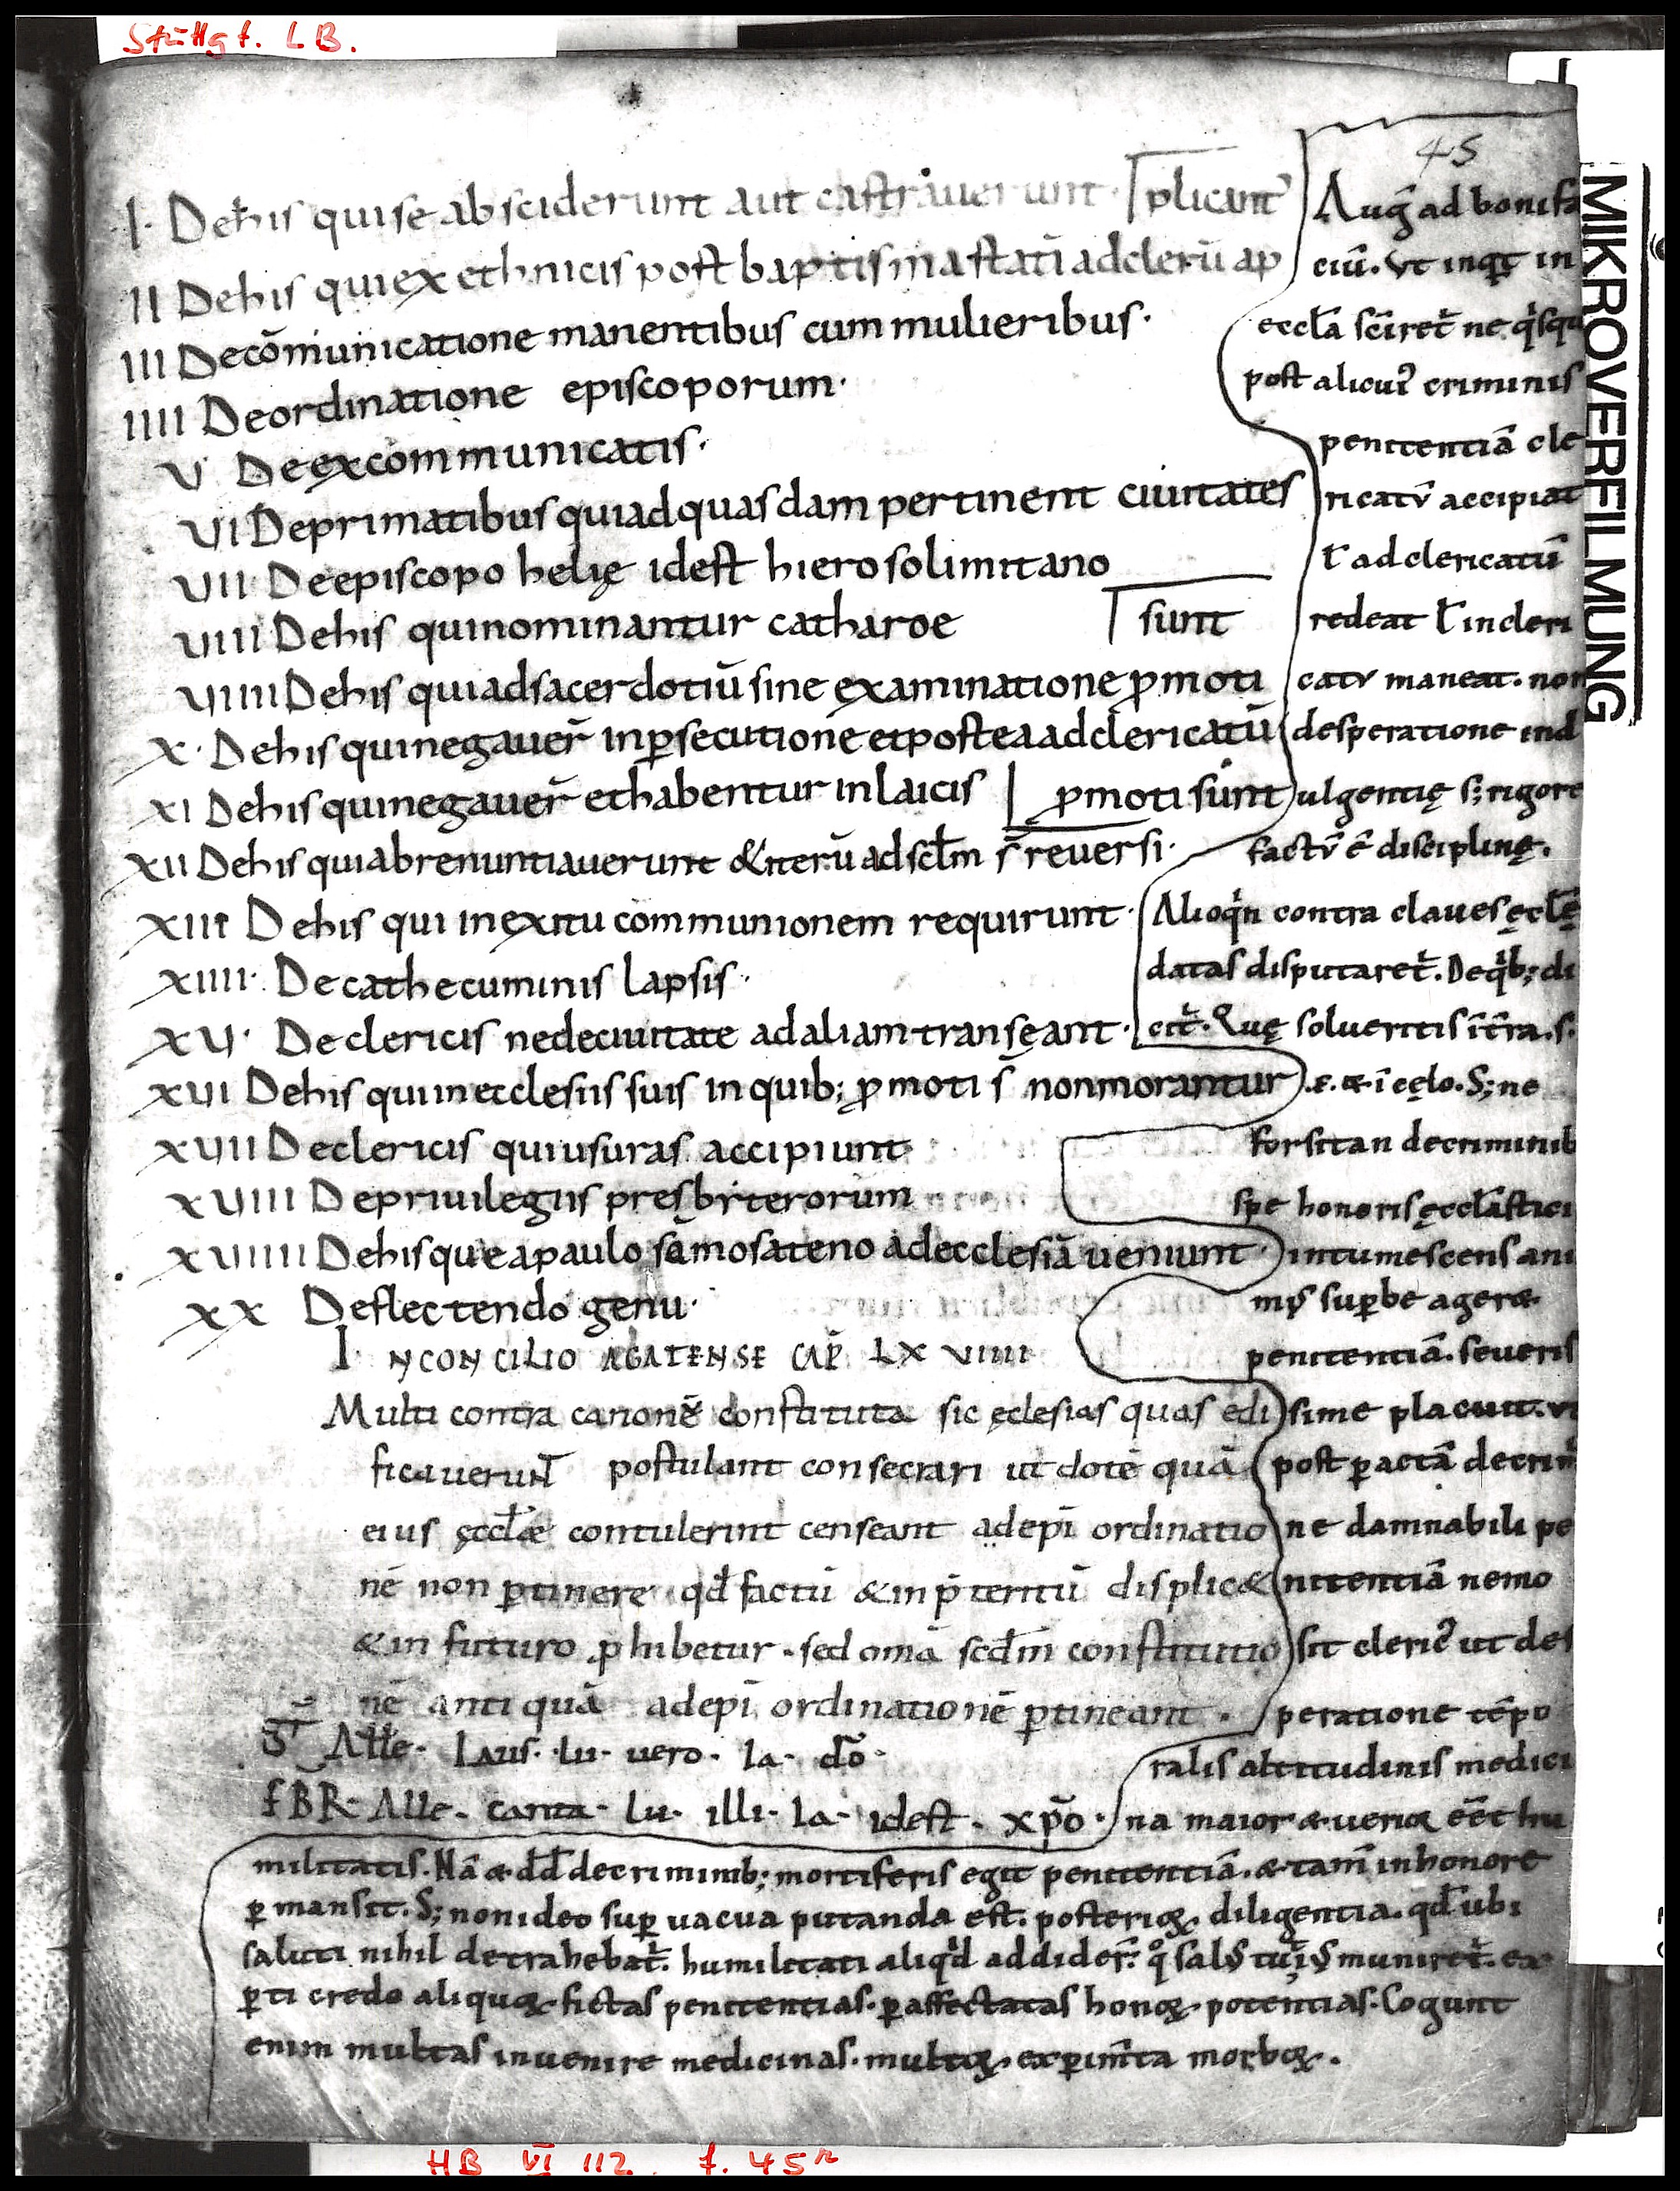 Stuttgt. LB.
MIKROVERFILMUNG
45
I. De his qui se absciderunt aut castrauerunt. plicant᷑
II De his qui ex ethnicis post baptisma statī ad clerū ap
III De cōmunicatione manentibus cum mulieribus.
IIII De ordinatione episcoporum.
V De excommunicatis.
VI De primatibus qui ad quasdam pertinent ciuitates
VII De episcopo helię idest hierosolimitano
VIII De his qui nominantur catharoe sunt
VIIII De his qui ad sacerdotiū sine examinatione ꝓmoti
X. De his qui negauer̄ in ꝑsecutione et postea ad clericatū
XI De his qui negauer̄ et habentur in laicis ꝓmoti sunt
XII De his qui abrenuntiauerunt & iterū ad sclm̄ s̄ reuersi.
XIII De his qui in exitu communionem requirunt.
XIIII. De cathecuminis lapsis.
XV. De clericis ne de ciuitate ad aliam transeant.
XVI De his qui in ecclesiis suis in quib; ꝓmoti s̄ non morantur
XVII De clericis qui usuras accipiunt
XVIII De priuilegiis presbiterorum
XVIIII De his que a paulo samosateno ad ecclesiā ueniunt.
XX De flectendo genu.
IN CONCILIO AGATENSE CAP̄ LXVIIII
Multi contra canonē constituta sic ęclesias quas edi
ficauerunt̄ postulant consecrari ut dotē quā
eius ęccl̄æ contulerint censeant ad ep̄i ordinatio
nē non ꝑtinere qd̄ factū & in p̄teritū displic&
& in futuro ꝓhibetur. sed omā scd̄m constitutio
nē antiquā ad ep̄i ordinationē ꝑtineant.
Alle. Laus. lu. uero. la. dō.
fBR. Alle. canta. lu. illi. la. idest. xp̄o.
Auḡ ad bonifa
ciū. Vt inqt in
eccl̄a sc̄iret᷑ ne qͥsqu
post alicui᷒ criminis
penitentiā cle
ricatū accipiat
ł ad clericatū
redeat ł in cleri
catu maneat. non
desperatione ind
ulgentię s; rigore
factū ē disciplinę.
Alioqͥn contra claues ęcl̄ę
datas disputaret᷑. De qͥb; di
cit᷑. Quę soluentis ī t̄ra. s.
e. & ī cęlo. S; ne
forsitan de criminib
spe honoris ęccl̄astici
intumescens ani
mꝰ suꝑbe ager&
penitentiā. seueris
sime placuit. ut
post ꝑactā de crim̄
ne damnabili pe
nitentiā nemo
sit cleric᷒ ut des
peratione tēpo
ralis altitudinis medici
na maior & ueriꝰ eēt hu
militatis. Nā & dd̄ de criminib; mortiferis egit penitentiā. & tam̄ in honore
ꝑmansit. S; non ideo suꝑuacua putanda est. posterioꝝ diligentia. qd̄ ubi
saluti nihil detrahebat᷑. humilitati aliqͥd addider̄. qͦ salꝰ tutiꝰ muniret᷑. ex
ꝑti credo aliquoꝝ fictas penitentias. ꝑ affectatas honoꝝ potentias. Cogunt
enim multas inuenire medicinas. multoꝝ exꝑim̄ta morboꝝ.
HB VI 112 f. 45r